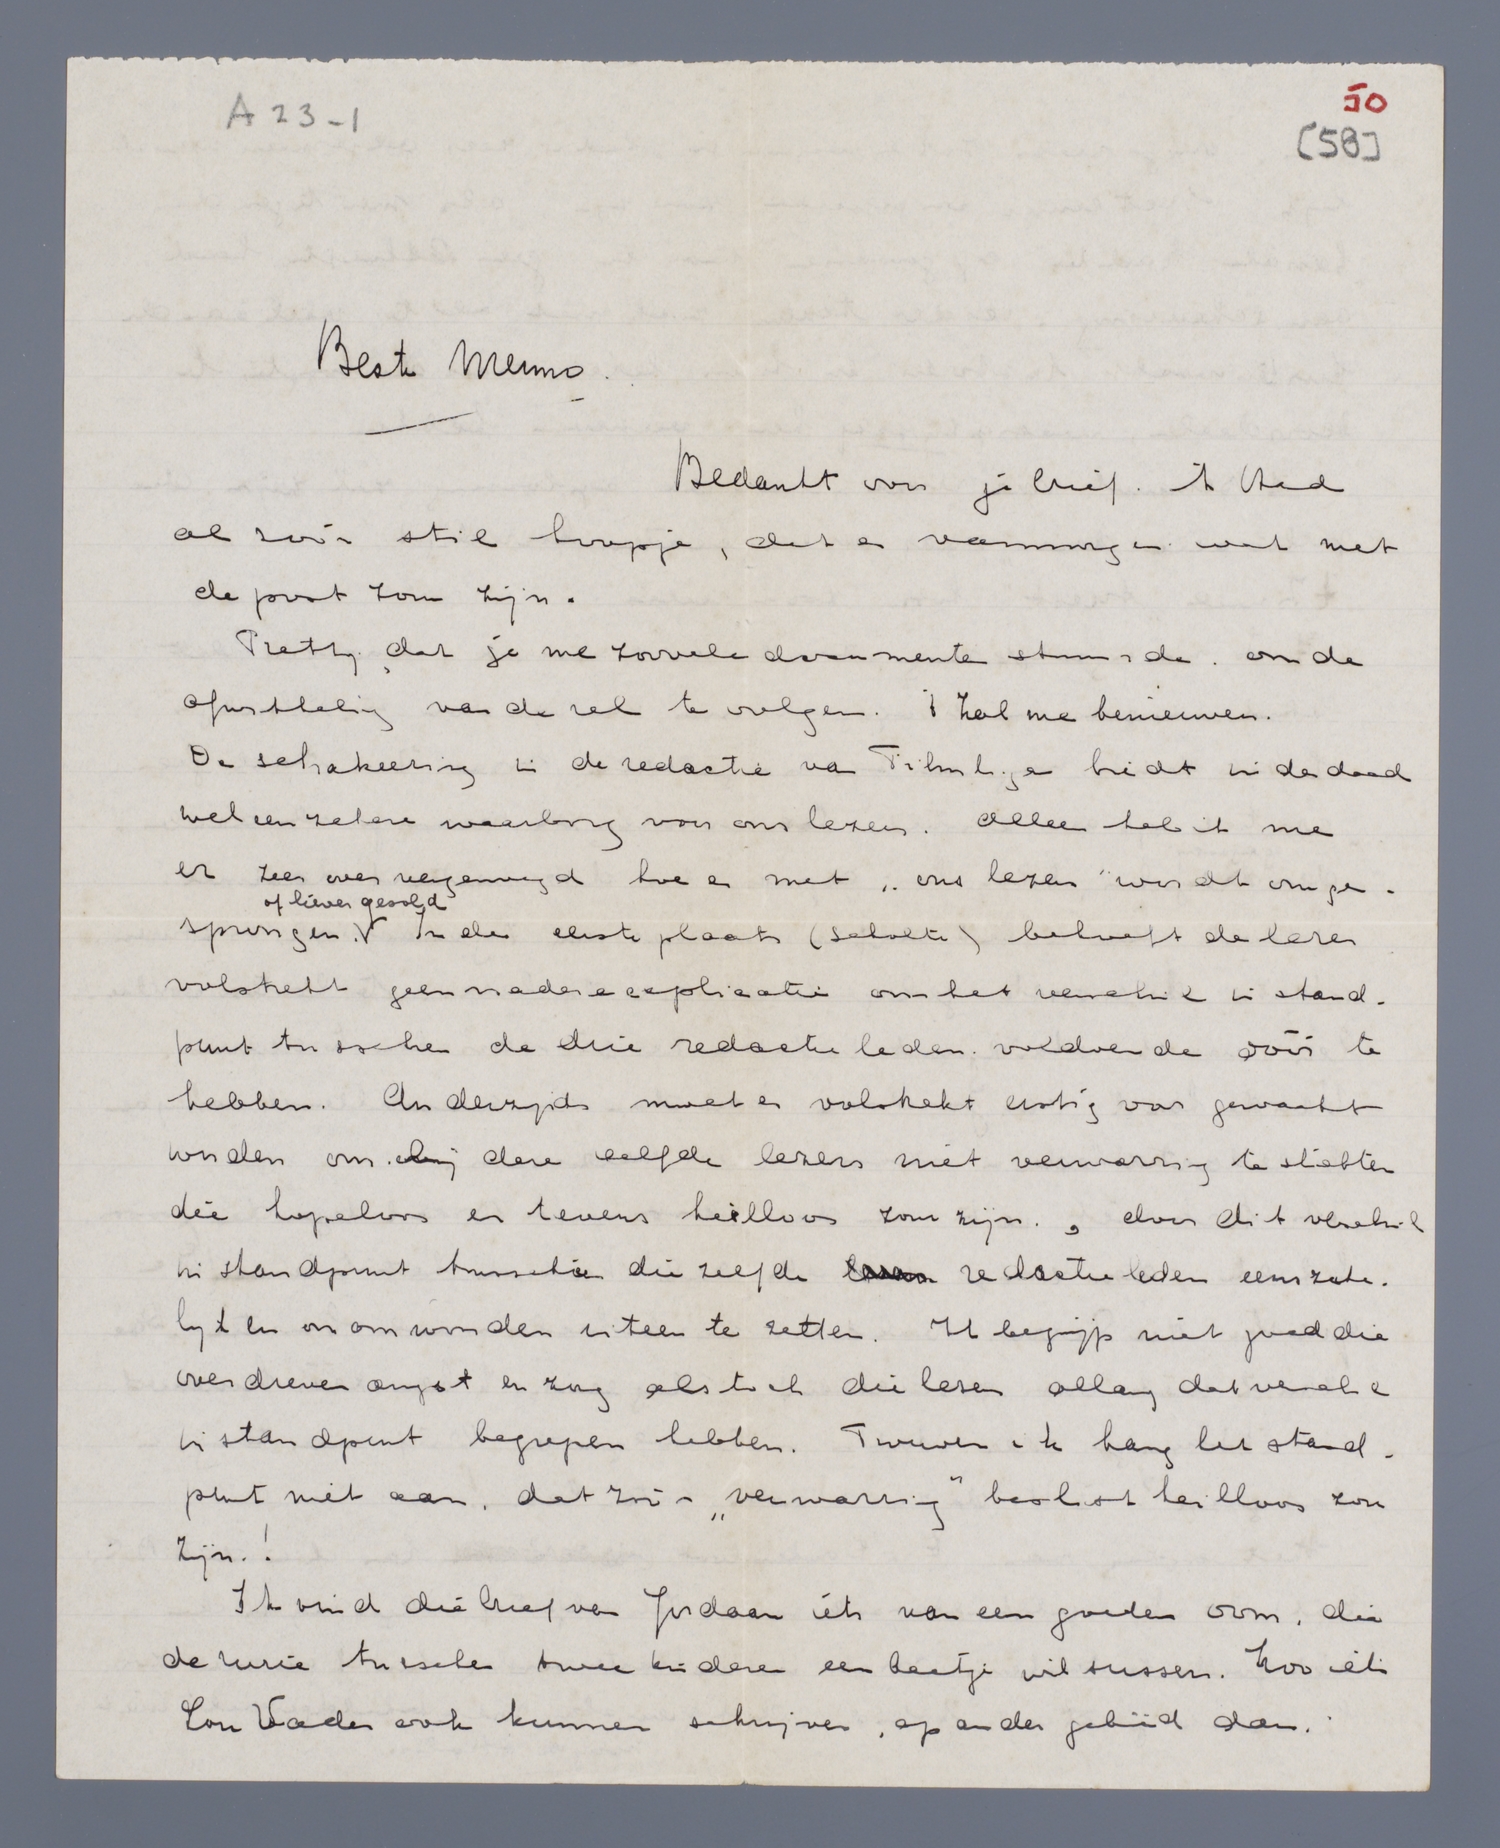 A 23-1
50
[58]
Beste Menno.
Bedankt voor je brief. ik had
al zoo'n stil hoopje, dat er vanmorgen wat met
de post zou zijn.
Prettig, dat je me zooveel documenten stuurde. om de
afwikkeling van de rel te volgen. 't Zal me benieuwen.
De schakeering in de redactie van Filmliga biedt inderdaad
wel een zekere waarborg voor ons lezers. Alleen heb ik me
er zeer over vergenoegd hoe er met „ons lezers" wordt omge-
of liever gesold
sprongen. In de eerste plaats (Scholte) behoeft de lezer
volstrekt geen nadere explicatie om het verschil in stand-
punt tusschen de drie redactieleden voldoende dóór te
hebben. Anderzijds moet er volstrekt ernstig voor gewaakt
worden om bij deze zelfde lezers niet verwarring te stichten
die hopeloos en tevens heilloos zou zijn, door dit verschil
in standpunt tusschen die zelfde redactieleden eens zake-
lijk en onomwonden uiteen te zetten. Ik begrijp niet goed die
overdreven angst en zorg als toch die lezers allang dat verschil
in standpunt begrepen hebben. Trouwens ik hang het stand-
punt niet aan, dat zoo'n „verwarring" beslist heilloos zou
zijn.!
Ik vind die brief van Jordaan iets van een goeden oom, die
de ruzie tusschen twee kinderen een beetje wil sussen. Zoo iets
zou Vader ook kunnen schrijven, op ander gebied dan.